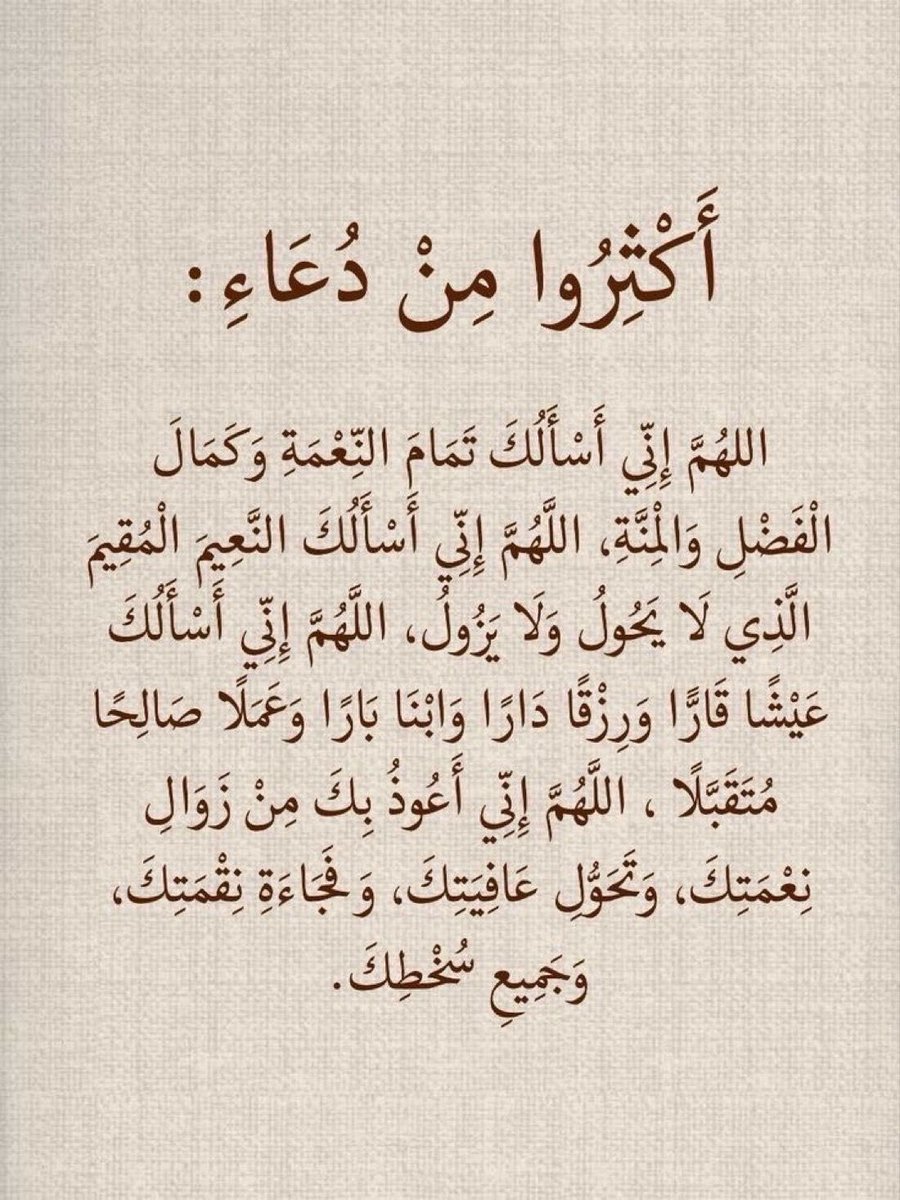 أَكْثِرُوا مِنْ دُعَاءِ:
اللهُمَّ إِنِّي أَسْأَلُكَ تَمَامَ النِّعْمَةِ وَكَمَالَ
الْفَضْلِ وَالْمِنَّةِ، اللَّهُمَّ إِنِّي أَسْأَلُكَ النَّعِيمَ الْمُقِيمَ
الَّذِي لَا يَحُولُ وَلَا يَزُولُ، اللَّهُمَّ إِنِّي أَسْأَلُكَ
عَيْشًا قَارًّا وَرِزْقًا دَارًا وَابْنَا بَارًا وَعَمَلًا صَالِحًا
مُتَقَبَّلًا ، اللَّهُمَّ إِنِّي أَعُوذُ بِكَ مِنْ زَوَالِ
نِعْمَتِكَ، وَتَحَوُّلِ عَافِيَتِكَ، وَفَجَاءَةِ نِقْمَتِكَ،
وَجَمِيعِ سُخْطِكَ.